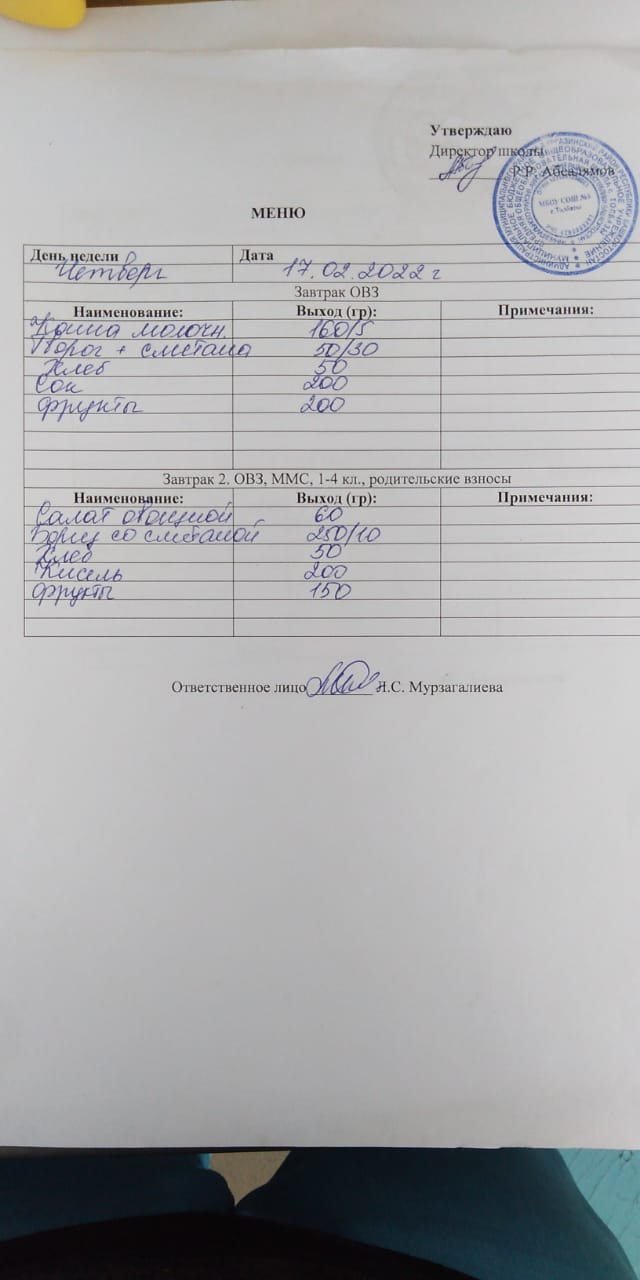 Утверждаю
Директор школы
Р.Р. Абсалямов
МБОУ СОШ №1
с.Толбазы
МЕНЮ
День недели Дата
Четверг 17.02.2022 г
Завтрак ОВЗ
Наименование: Выход (гр): Примечания:
Каша молочн. 160/5
Творог + сметана 50/30
Хлеб 50
Сок 200
Фрукты 200
Завтрак 2. ОВЗ, ММС, 1-4 кл., родительские взносы
Наименование: Выход (гр): Примечания:
Салат овощной 60
Борщ со сметаной 250/10
Хлеб 50
Кисель 200
Фрукты 150
Ответственное лицо Л.С. Мурзагалиева